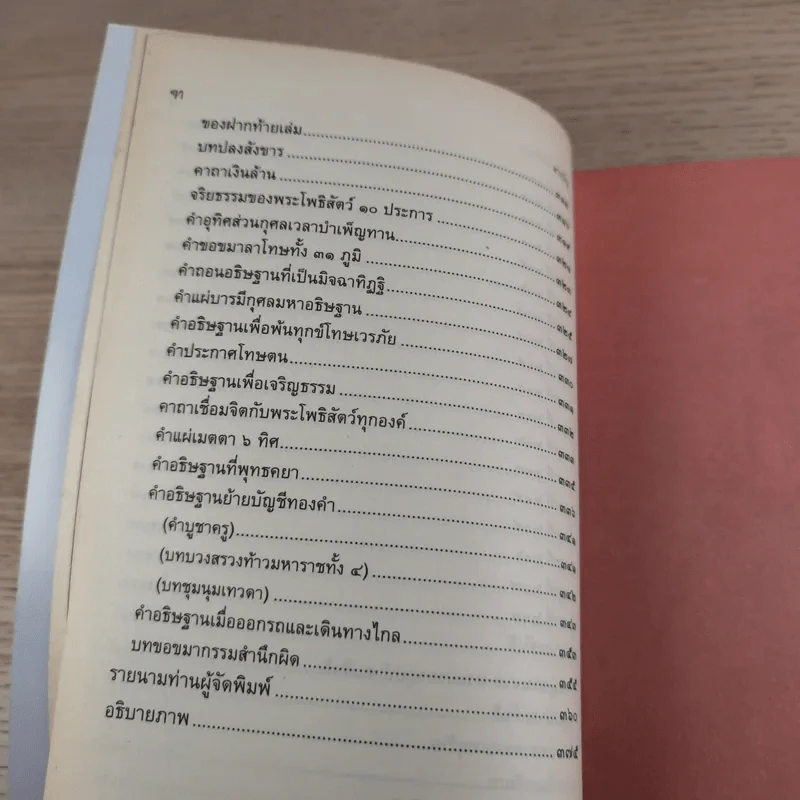 ฑ
ของฝากท้ายเล่ม
บทปลงสังขาร
คาถาเงินล้าน
จริยธรรมของพระโพธิสัตว์ ๑๐ ประการ
คำอุทิศส่วนกุศลเวลาบำเพ็ญทาน
คำขอขมาลาโทษทั้ง ๓๑ ภูมิ ........ ๓๒๔
คำถอนอธิษฐานที่เป็นมิจฉาทิฏฐิ ........ ๓๒๕
คำแผ่บารมีกุศลมหาอธิษฐาน ........ ๓๒๗
คำอธิษฐานเพื่อพ้นทุกข์โทษเวรภัย ........ ๓๓๐
คำประกาศโทษตน ........ ๓๓๑
คำอธิษฐานเพื่อเจริญธรรม ........ ๓๓๒
คาถาเชื่อมจิตกับพระโพธิสัตว์ทุกองค์ ........ ๓๓๓
คำแผ่เมตตา ๖ ทิศ ........ ๓๓๕
คำอธิษฐานที่พุทธคยา ........ ๓๓๖
คำอธิษฐานย้ายบัญชีทองคำ ........ ๓๔๑
(คำบูชาครู) ........ ๓๔๑
(บทบวงสรวงท้าวมหาราชทั้ง ๔) ........ ๓๔๒
(บทชุมนุมเทวดา) ........ ๓๔๓
คำอธิษฐานเมื่อออกรถและเดินทางไกล ........ ๓๕๓
บทขอขมากรรมสำนึกผิด ........ ๓๕๕
รายนามท่านผู้จัดพิมพ์ ........ ๓๖๐
อธิบายภาพ ........ ๓๗๕